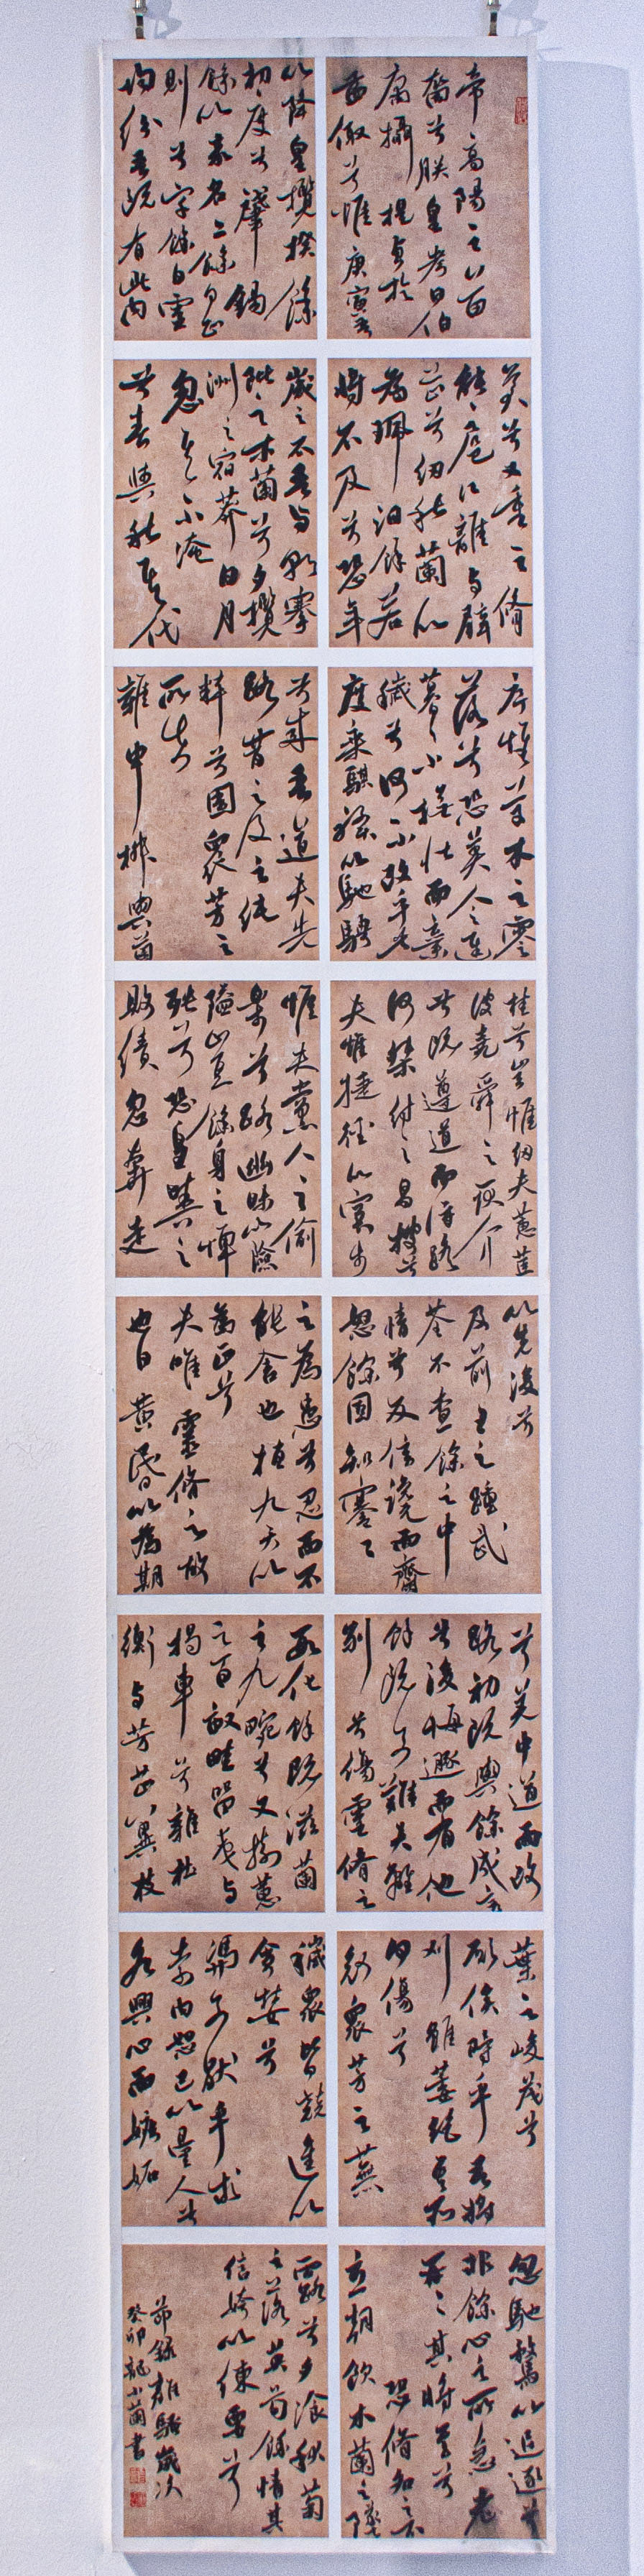 帝高陽之苗
裔兮朕皇考曰伯
庸攝提貞於
孟陬兮惟庚寅吾
以降皇攬揆餘
初度兮肇錫
餘以嘉名名餘曰正
則兮字餘曰靈
均紛吾既有此內
美兮又重之脩
能扈江離與辟
芷兮紉秋蘭以
為珮汩餘若
將不及兮恐年
歲之不吾與朝搴
阰之木蘭兮夕攬
洲之宿莽日月
忽其不淹
兮春與秋其代
序惟草木之零
落兮恐美人之遲
暮不撫壯而棄
穢兮何不改乎此
度乘騏驥以馳騁
兮來吾道夫先
路昔三后之純
粹兮固眾芳之
所在
雜申椒與菌
桂兮豈惟紉夫蕙茝
彼堯舜之耿介
兮既遵道而得路
何桀紂之昌披兮
夫惟捷徑以窘步
惟夫黨人之偷
樂兮路幽昧以險
隘豈餘身之憚
殃兮恐皇輿之
敗績忽奔走
以先後兮
及前王之踵武
荃不查餘之中
情兮反信讒而齌
怒餘固知謇謇
之為患兮忍而不
能舍也指九天以
為正兮
夫唯靈脩之故
也曰黃昏以為期
兮羌中道而改
路初既與餘成言
兮後悔遯而有他
餘既不難夫離
別兮傷靈脩之
數化餘既滋蘭
之九畹兮又樹蕙
之百畝畦留夷與
揭車兮雜杜
衡與芳芷冀枝
葉之峻茂兮
願俟時乎吾將
刈雖萎絕其亦
何傷兮
哀眾芳之蕪
穢眾皆競進以
貪婪兮
憑不猒乎求
索內恕己以量人兮
各興心而嫉妒
忽馳騖以追逐兮
非餘心之所急老
冉冉其將至兮
恐脩名之不
立朝飲木蘭之墜
露兮夕餐秋菊
之落英苟餘情其
信姱以練要兮
節錄離騷歲次
癸卯龍小蘭書